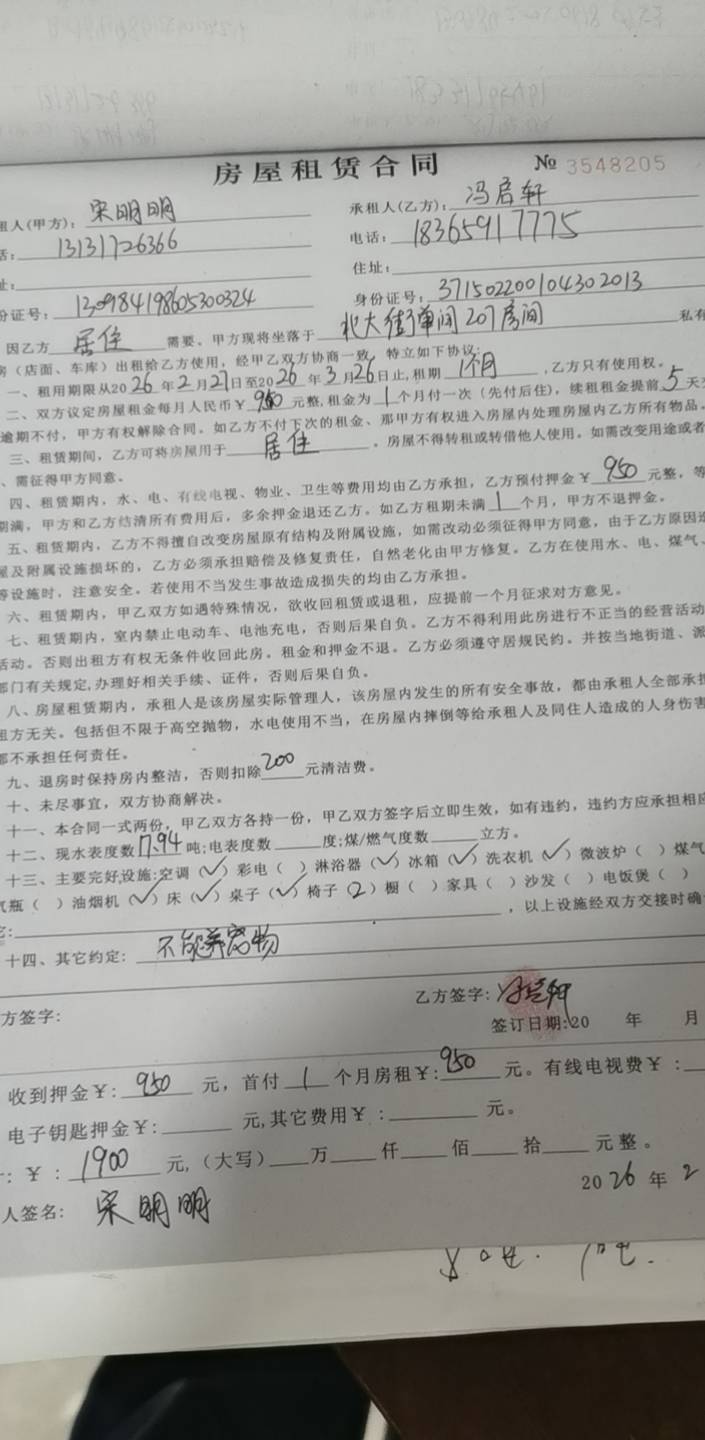 房屋租赁合同 № 3548205
租人(甲方): 宋明明 承租人(乙方): 冯启轩
话: 13131726366 电话: 18365917775
址: 住址:
份证号: 130984198605300324 身份证号: 371502200104302013
因乙方 居住 需要、甲方现将坐落于 北大街单间207房间 私有
房（店面、车库）出租给乙方使用，经甲乙双方协商一致，特立如下协议:
一、租用期限从2026年2月27日至2026年3月26日止,租期 1个月 ,乙方只有使用权。
二、双方议定房屋租金每月人民币￥ 950 元整,租金为 1 个月付一次（先付后住),续租租金提前 5 天交
逾期不付，甲方有权解除合同。如乙方不付下次的租金、那甲方有权进入房屋内处理房屋内乙方所有物品。
三、租赁期间，乙方可将房屋用于 居住 。房屋不得转租或转借他人使用。如需改变用途或者
、需征得甲方同意。
四、租赁期内，水、电、有线电视、物业、卫生等费用均由乙方承担，乙方预付押金￥ 950 元整，等
期满，甲方和乙方结清所有费用后，多余押金退还乙方。如乙方租期未满 1 个月，甲方不退押金。
五、租赁期内，乙方不得擅自改变房屋原有结构及附属设施，如需改动必须征得甲方同意，由于乙方原因造
屋及附属设施损坏的，乙方必须承担赔偿及修复责任，自然老化由甲方修复。乙方在使用水、电、煤气、
等设施时，注意安全。若使用不当发生事故造成损失的均由乙方承担。
六、租赁期内，甲乙双方如遇特殊情况，欲收回租赁或退租，应提前一个月征求对方意见。
七、租赁期内，室内禁止电动车、电池充电，否则后果自负。乙方不得利用此房进行不正当的经营活动
活动。否则出租方有权无条件收回此房。租金和押金不退。乙方必须遵守居规民约。并按当地街道、派
部门有关规定,办理好相关手续、证件，否则后果自负。
八、房屋租赁期内，承租人是该房屋实际管理人，该房屋内发生的所有安全事故，都由承租人全部承担
租方无关。包括但不限于高空抛物，水电使用不当，在房屋内摔倒等给承租人及同住人造成的人身伤害
都不承担任何责任。
九、退房时保持房内整洁，否则扣除 200 元清洁费。
十、未尽事宜，双方协商解决。
十一、本合同一式两份，甲乙双方各持一份，甲乙双方签字后立即生效，如有违约，违约方应承担相应
十二、现水表度数 17.94 吨;电表度数 度;煤/燃气度数 立方。
十三、主要完好设施:空调（✓）彩电（ ）淋浴器（✓）冰箱（✓）洗衣机（✓）微波炉（ ）煤气
气瓶（ ）油烟机（✓）床（✓）桌子（✓）椅子（2）橱（ ）家具（ ）沙发（ ）电饭煲（ ）
它: ，以上设施经双方交接时确
十四、其它约定: 不能养宠物
方签字: 乙方签字: 冯启轩
签订日期:20 年 月
收到押金￥: 950 元，首付 1 个月房租￥: 950 元。有线电视费￥:
电子钥匙押金￥: 元,其它费用￥: 元。
:￥: 1900 元,（大写） 万 仟 佰 拾 元整。
2026年2
人签名: 宋明明